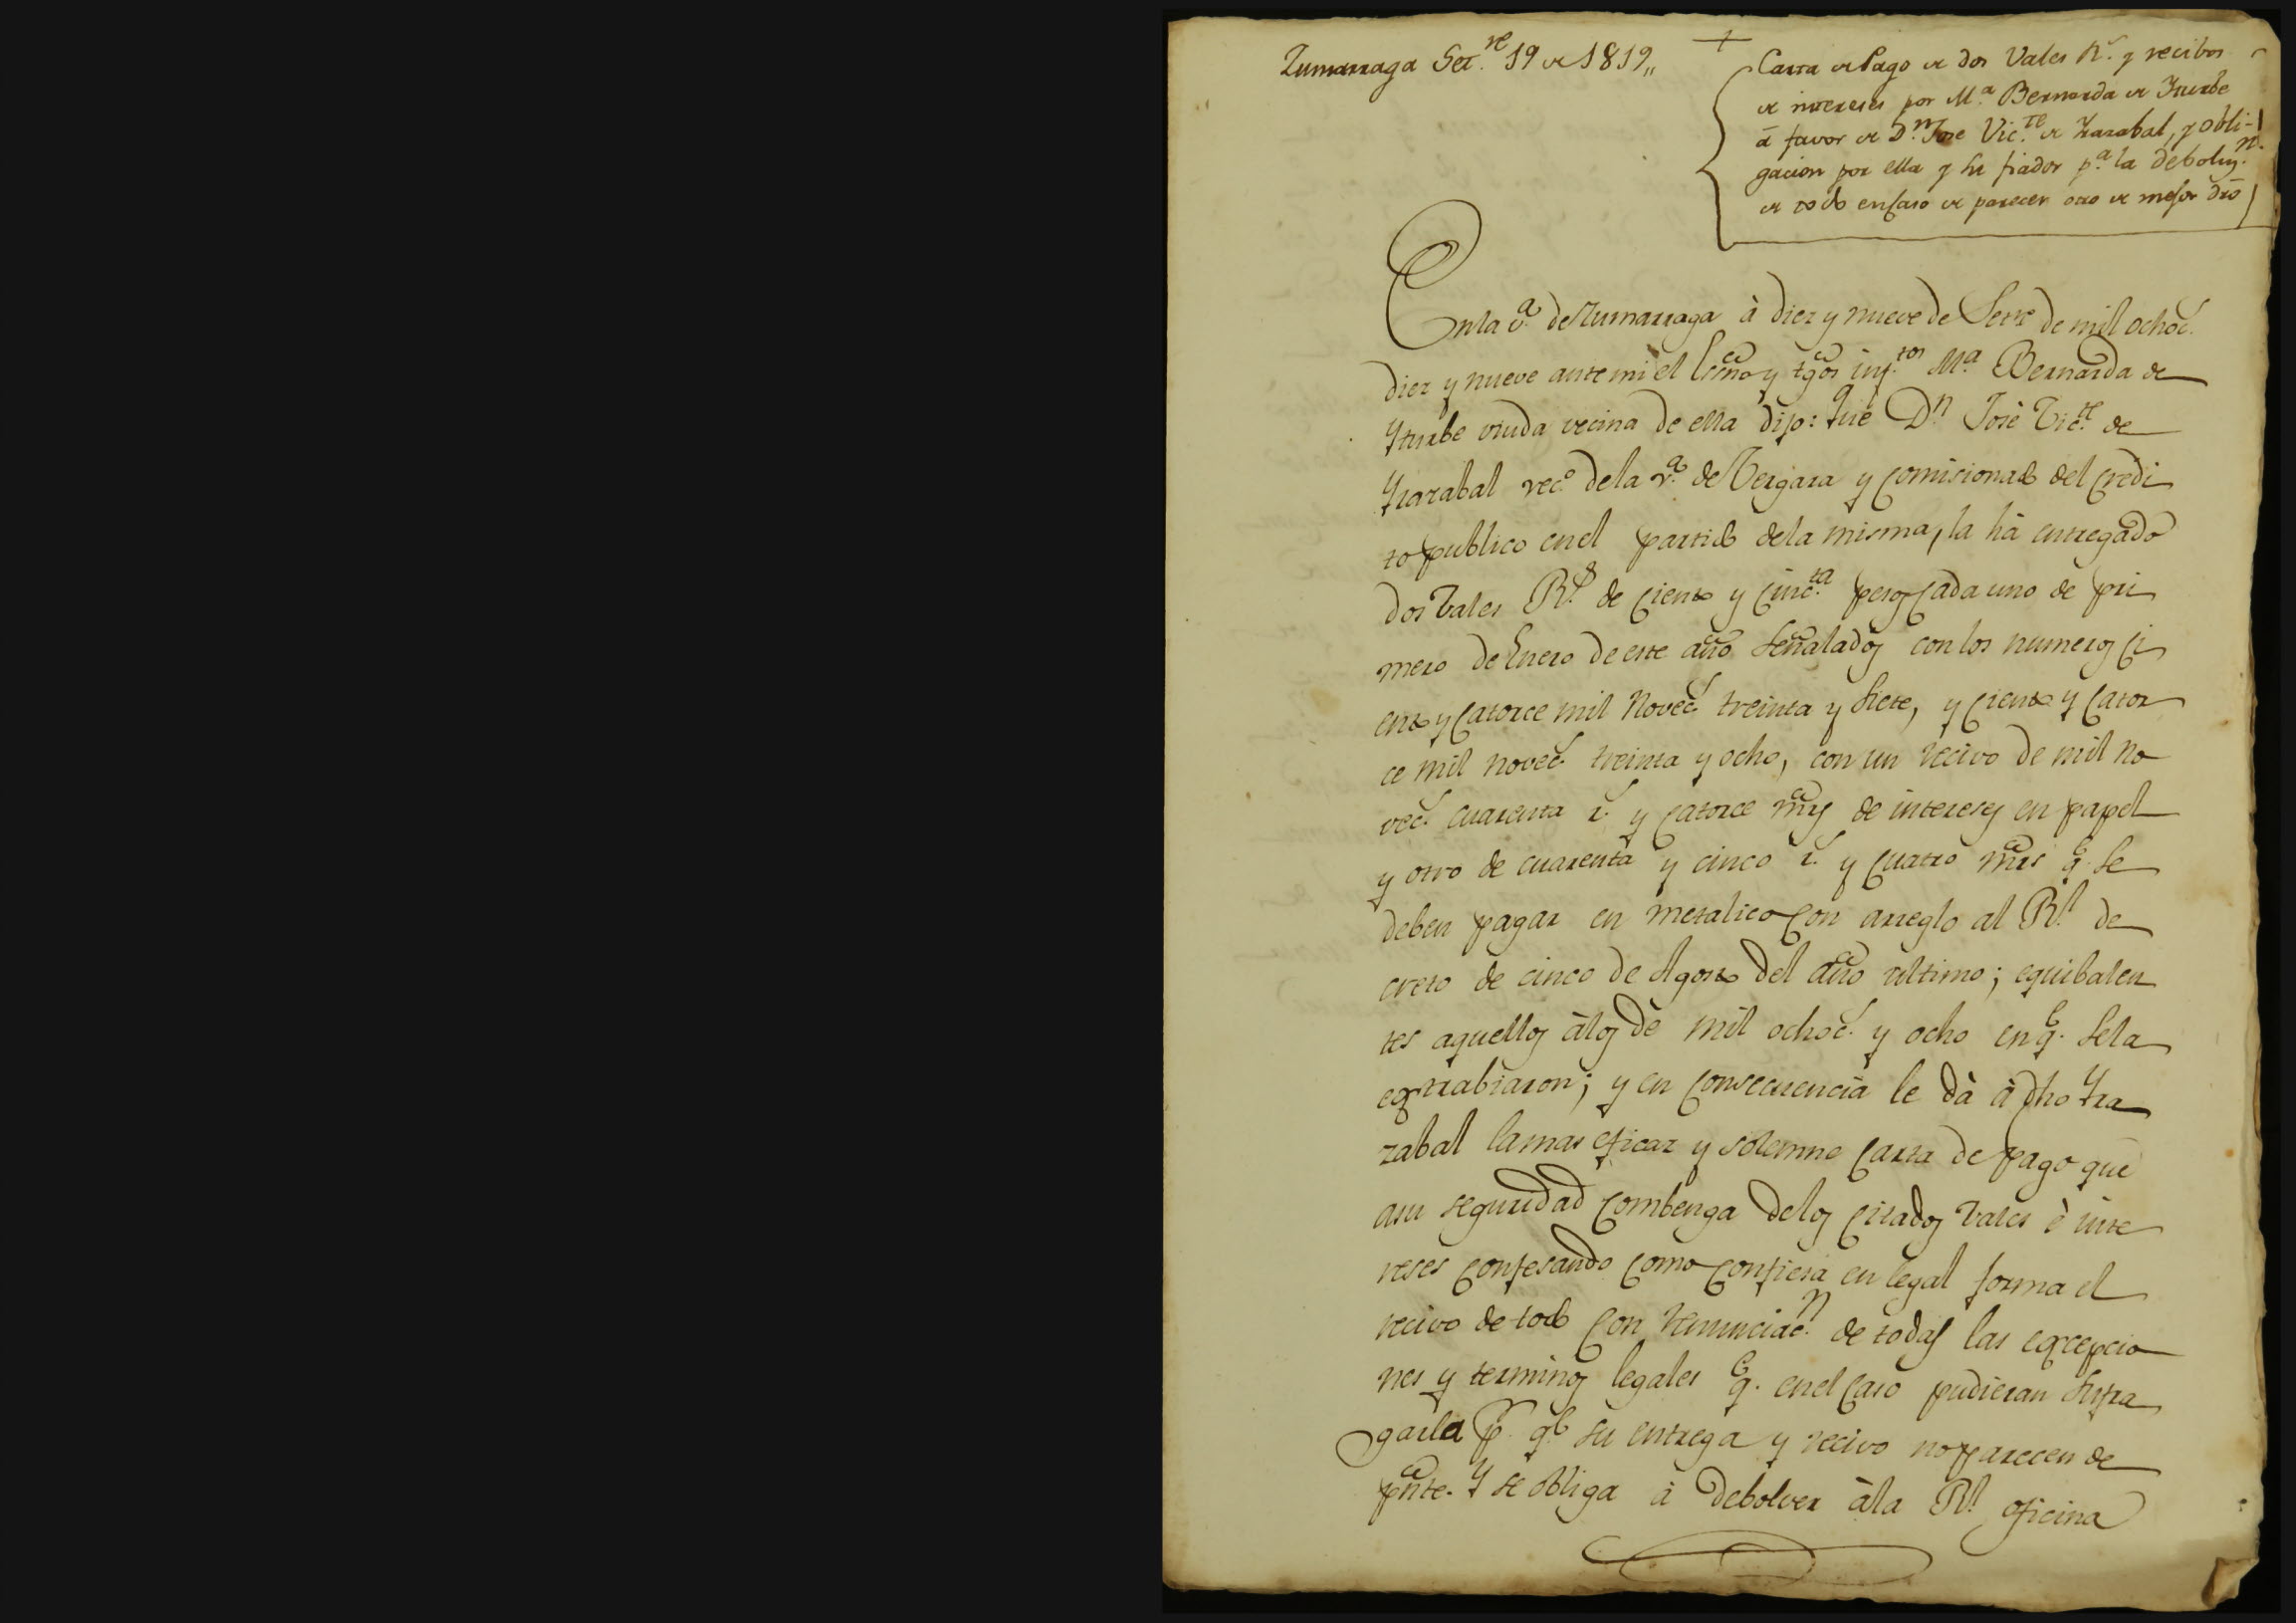 Zumarraga Set.re 19 de 1819,,
+
Carta de Pago de dos Vales R.s y recibos
de intereses por M.a Bernarda de Yturbe
á favor de D.n Jose Vic.te de Yrazabal, y obli-
gacion por ella y su fiador p.a la deboluz.n
de todo en caso de parecer otro de mejor dro
En la v.a de Zumarraga à diez y nueve de Setre de mil ochoc.s
diez y nueve ante mi el Escno y tgos inf.tos M.a Bernarda de
Yturbe viuda vecina de ella dijo: Que D.n Josè Vic.te de
Yrazabal vec.o de la v.a de Vergara y comisionado del credi
to publico en el partido de la misma, la hà entregado
dos Vales R.s de ciento y cinc.ta pesos cada uno de pri
mero de Enero de este año señalados con los numeros ci
ento y catorce mil novec.s treinta y siete, y ciento y cator
ce mil novec.s treinta y ocho, con un recivo de mil no
vec.s cuarenta r.s y catorce mrs de intereses en papel
y otro de cuarenta y cinco r.s y cuatro mrs q.e se
deben pagar en metalico con arreglo al R.l de
creto de cinco de Agosto del año ultimo; equibalen
tes aquellos àlos de mil ochoc.s y ocho en q.e se la
extrabiaron; y en consecuencia le dà à dho Yra
zabal la mas eficaz y solemne carta de pago que
a su seguridad combenga delos citados Vales è inte
reses confesando como confiesa en legal forma el
recivo de todo con renunciac.n de todas las excepcio
nes y terminos legales q.e en el caso pudieran sufra
garla p.r q.e su entrega y recivo no parecen de
pnte. Y se obliga à debolver àla R.l oficina